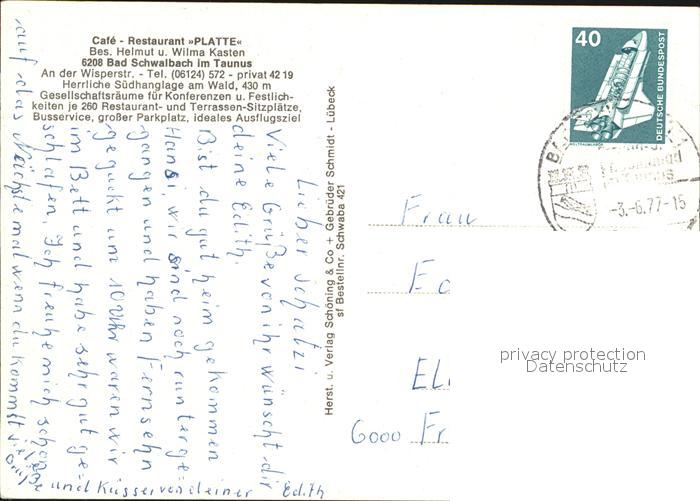 Café - Restaurant »PLATTE«
Bes. Helmut u. Wilma Kasten
6208 Bad Schwalbach im Taunus
An der Wisperstr. - Tel. (06124) 572 - privat 42 19
Herrliche Südhanglage am Wald, 430 m
Gesellschaftsräume für Konferenzen u. Festlich-
keiten je 260 Restaurant- und Terrassen-Sitzplätze,
Busservice, großer Parkplatz, ideales Ausflugsziel
Lieber Schatzi
Viele Grüße von ihr wünscht dir
deine Edith.
Bist du gut heim gekommen
Hansi, wir sind noch runterge
gangen und haben Fernsehn
geguckt um 10 Uhr waren wir
im Bett und habe sehr gut ge
schlafen. Ich freuhe mich schon
auf das Nächstemal wenn du kommst viele
Grüße und Küsse von deiner Edith
Herst. u. Verlag Schöning & Co + Gebrüder Schmidt - Lübeck
sf Bestellnr. Schwaba 421
40
DEUTSCHE BUNDESPOST
WELTRAUMLABOR
-3.-6.77-15
Frau
6000 Fr
privacy protection
Datenschutz